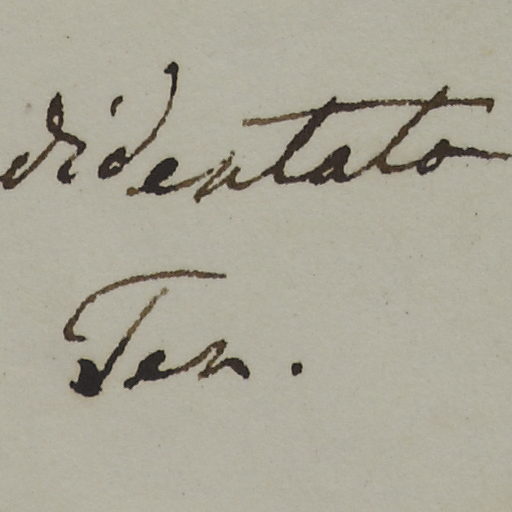 didentato
Ten.